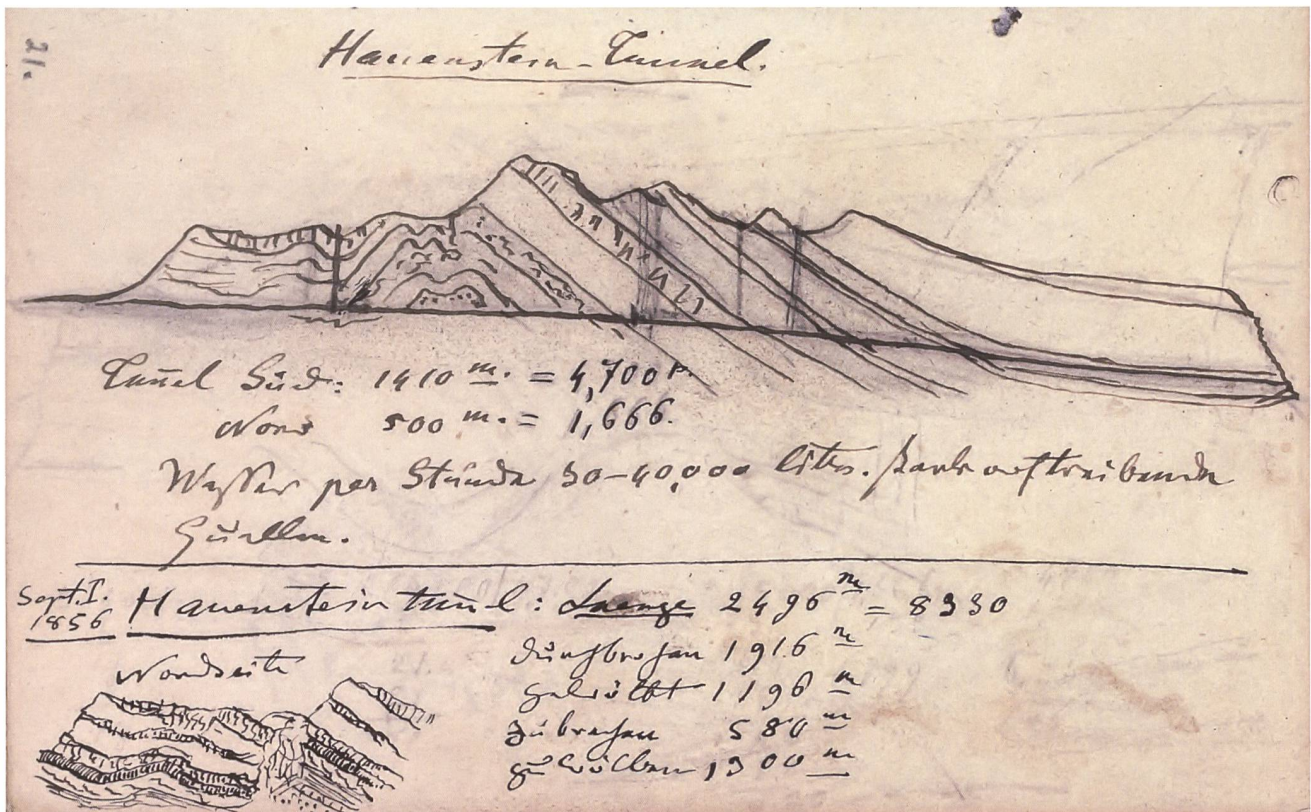 21.
Hauenstein-Tunnel.
Tuñel Süd: 1410 m. = 4,700 F.
Nord 500 m. = 1,666.
Wasser per Stunde 30-40,000 Litr. stark auftreibende
Quellen.
Sept. I.
1856
Hauenstein tuñel: Laenge 2496 m = 8330
Nordseite
durchbrochen 1916 m
gewölbt 1196 m
zu brechen 580 m
zu wölben 1300 m